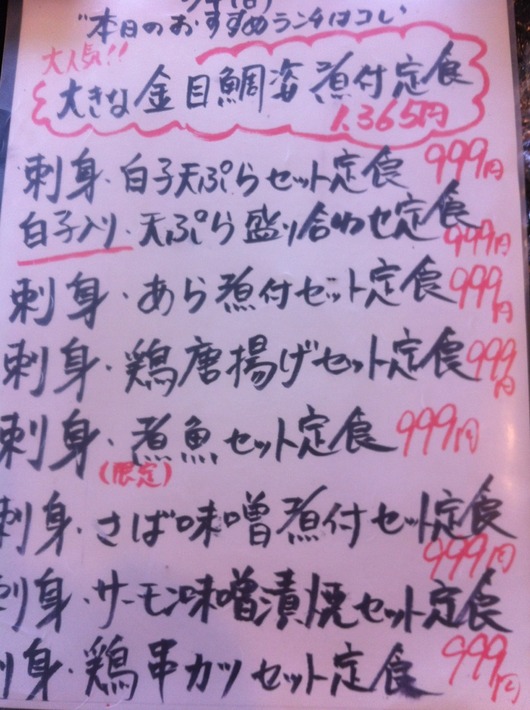 "本日のおすすめランチはコレ
大人気!!
大きな金目鯛姿煮付定食
1,365円
刺身・白子天ぷらセット定食 999円
白子入り・天ぷら盛り合わせ定食 999円
刺身・あら煮付セット定食 999円
刺身・鶏唐揚げセット定食 999円
刺身・煮魚セット定食 999円
(限定)
刺身・さば味噌煮付セット定食 999円
刺身・サーモン味噌漬焼セット定食
刺身・鶏串カツセット定食 999円